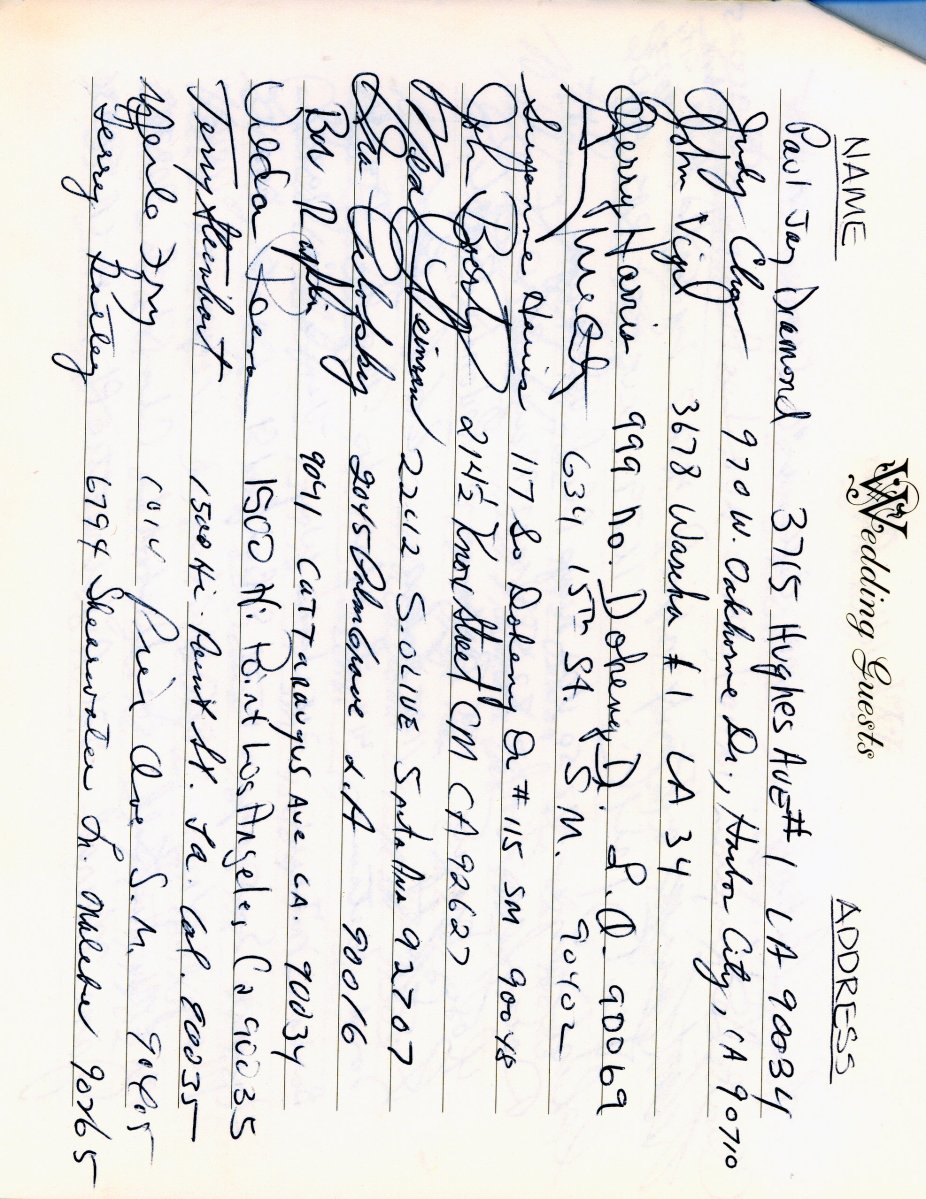 Wedding Guests
NAME ADDRESS
Paul Jay Diamond 3715 Hughes AVE #1 LA 90034
Judy 970 W. Oakhorne Dr., Harbor City, CA 90710
John Vigil 3678 Wasatch #1 LA 34
Cherry Harris 999 No. Doheny Dr. L.A. 90069
634 15th St. SM. 90402
Suzanne Harris 117 So Doheny Dr #115 SM 90048
John 214½ Knox Street CM CA 92627
2242 S. OLIVE Santa Ana 92707
2045 Palm Grove L.A 90016
9041 CATTARAUGUS Ave LA. 90034
1500 Hi Point Los Angeles Ca 90035
Terry Steinhart 1500 Hi-Point St. La. Cal. 90035
Pier Ave S.M. 90405
Jerry 6794 Shearwater Ln. Malibu 90265